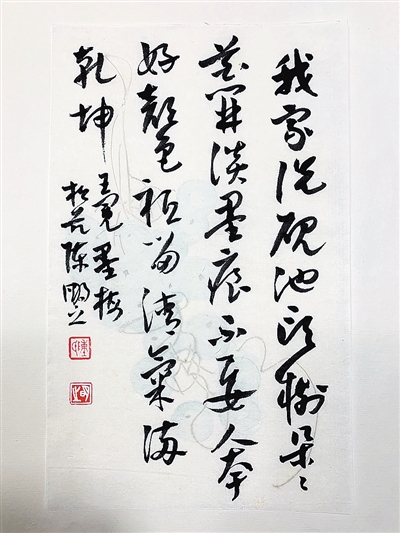 我家洗砚池头树朵々
花开淡墨痕不要人夸
好颜色祇留清气满
乾坤
王冕墨梅
陈鹏